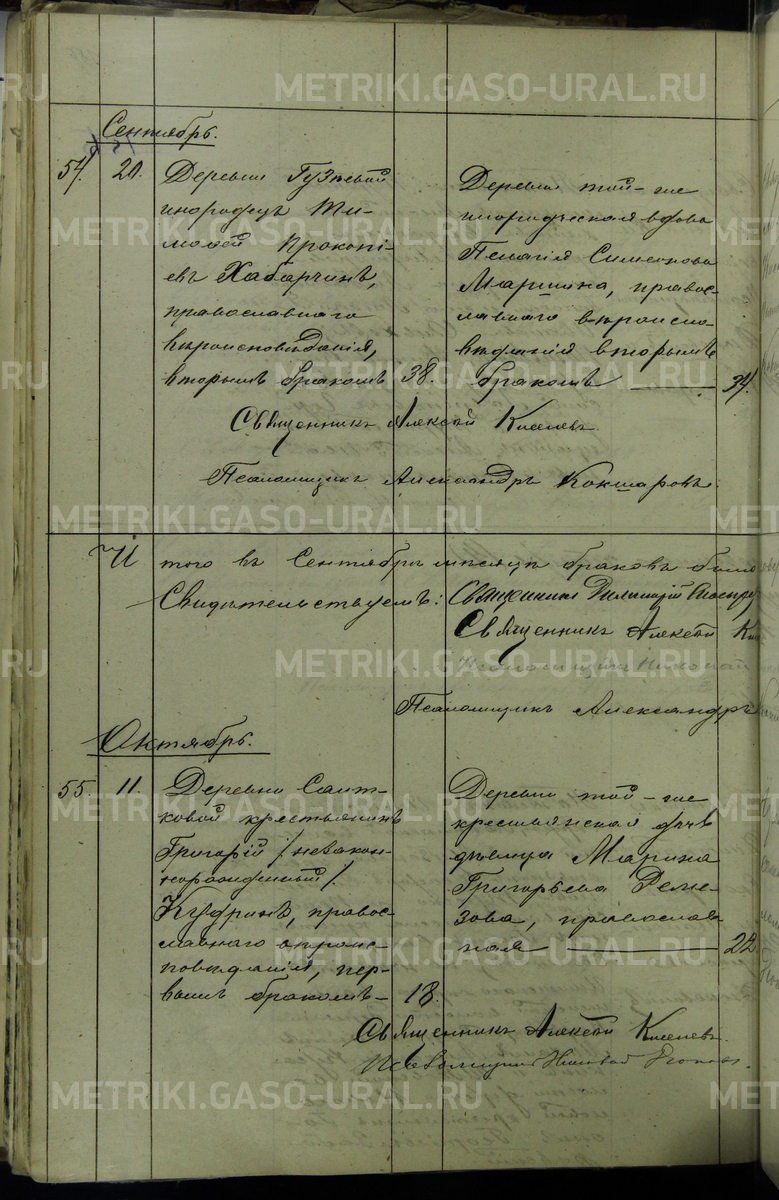 Сентябрь.
54. 20. Деревни Гузѣевой
инородецъ Ти-
моѳей Прокопі-
евъ Хабарчинъ,
православнаго
вѣроисповѣданія,
вторымъ бракомъ 38.
Деревни той-же
инородческая вдова
Пелагія Симеонова
Маришна, правос-
лавнаго вѣроиспо-
вѣданія вторымъ
бракомъ 34.
Священникъ Алексѣй Киселевъ.
Псаломщикъ Александръ Кокшаровъ.
Итого въ Сентябрѣ мѣсяцѣ браковъ было
Свидѣтельствуемъ: Священникъ Димитрій
Священникъ Алексѣй
Псаломщикъ Николай
Псаломщикъ Александръ
Октябрь.
55. 11. Деревни Саит-
ковой крестьянинъ
Григорій /незакон-
норожденный/
Кудринъ, право-
славнаго вѣроис-
повѣданія, пер-
вымъ бракомъ 18.
Деревни той-же
крестьянская
дѣвица Марина
Григорьева Реме-
зова, православ-
ная 22
Священникъ Алексѣй Киселевъ.
Псаломщикъ Николай
METRIKI.GASO-URAL.RU